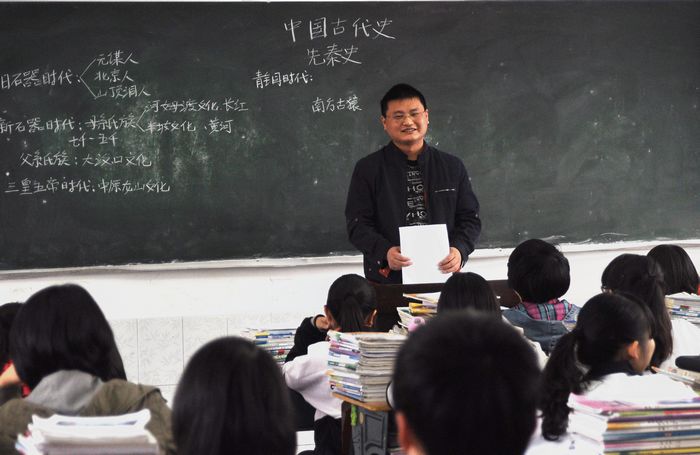 中国古代史
先秦史
元谋人
旧石器时代： 北京人
山顶洞人
时代：
南方古猿
河姆渡文化、长江
新石器时代：母系氏族 半坡文化、黄河
七千-五千
父系氏族：大汶口文化
三皇五帝时代：中原龙山文化